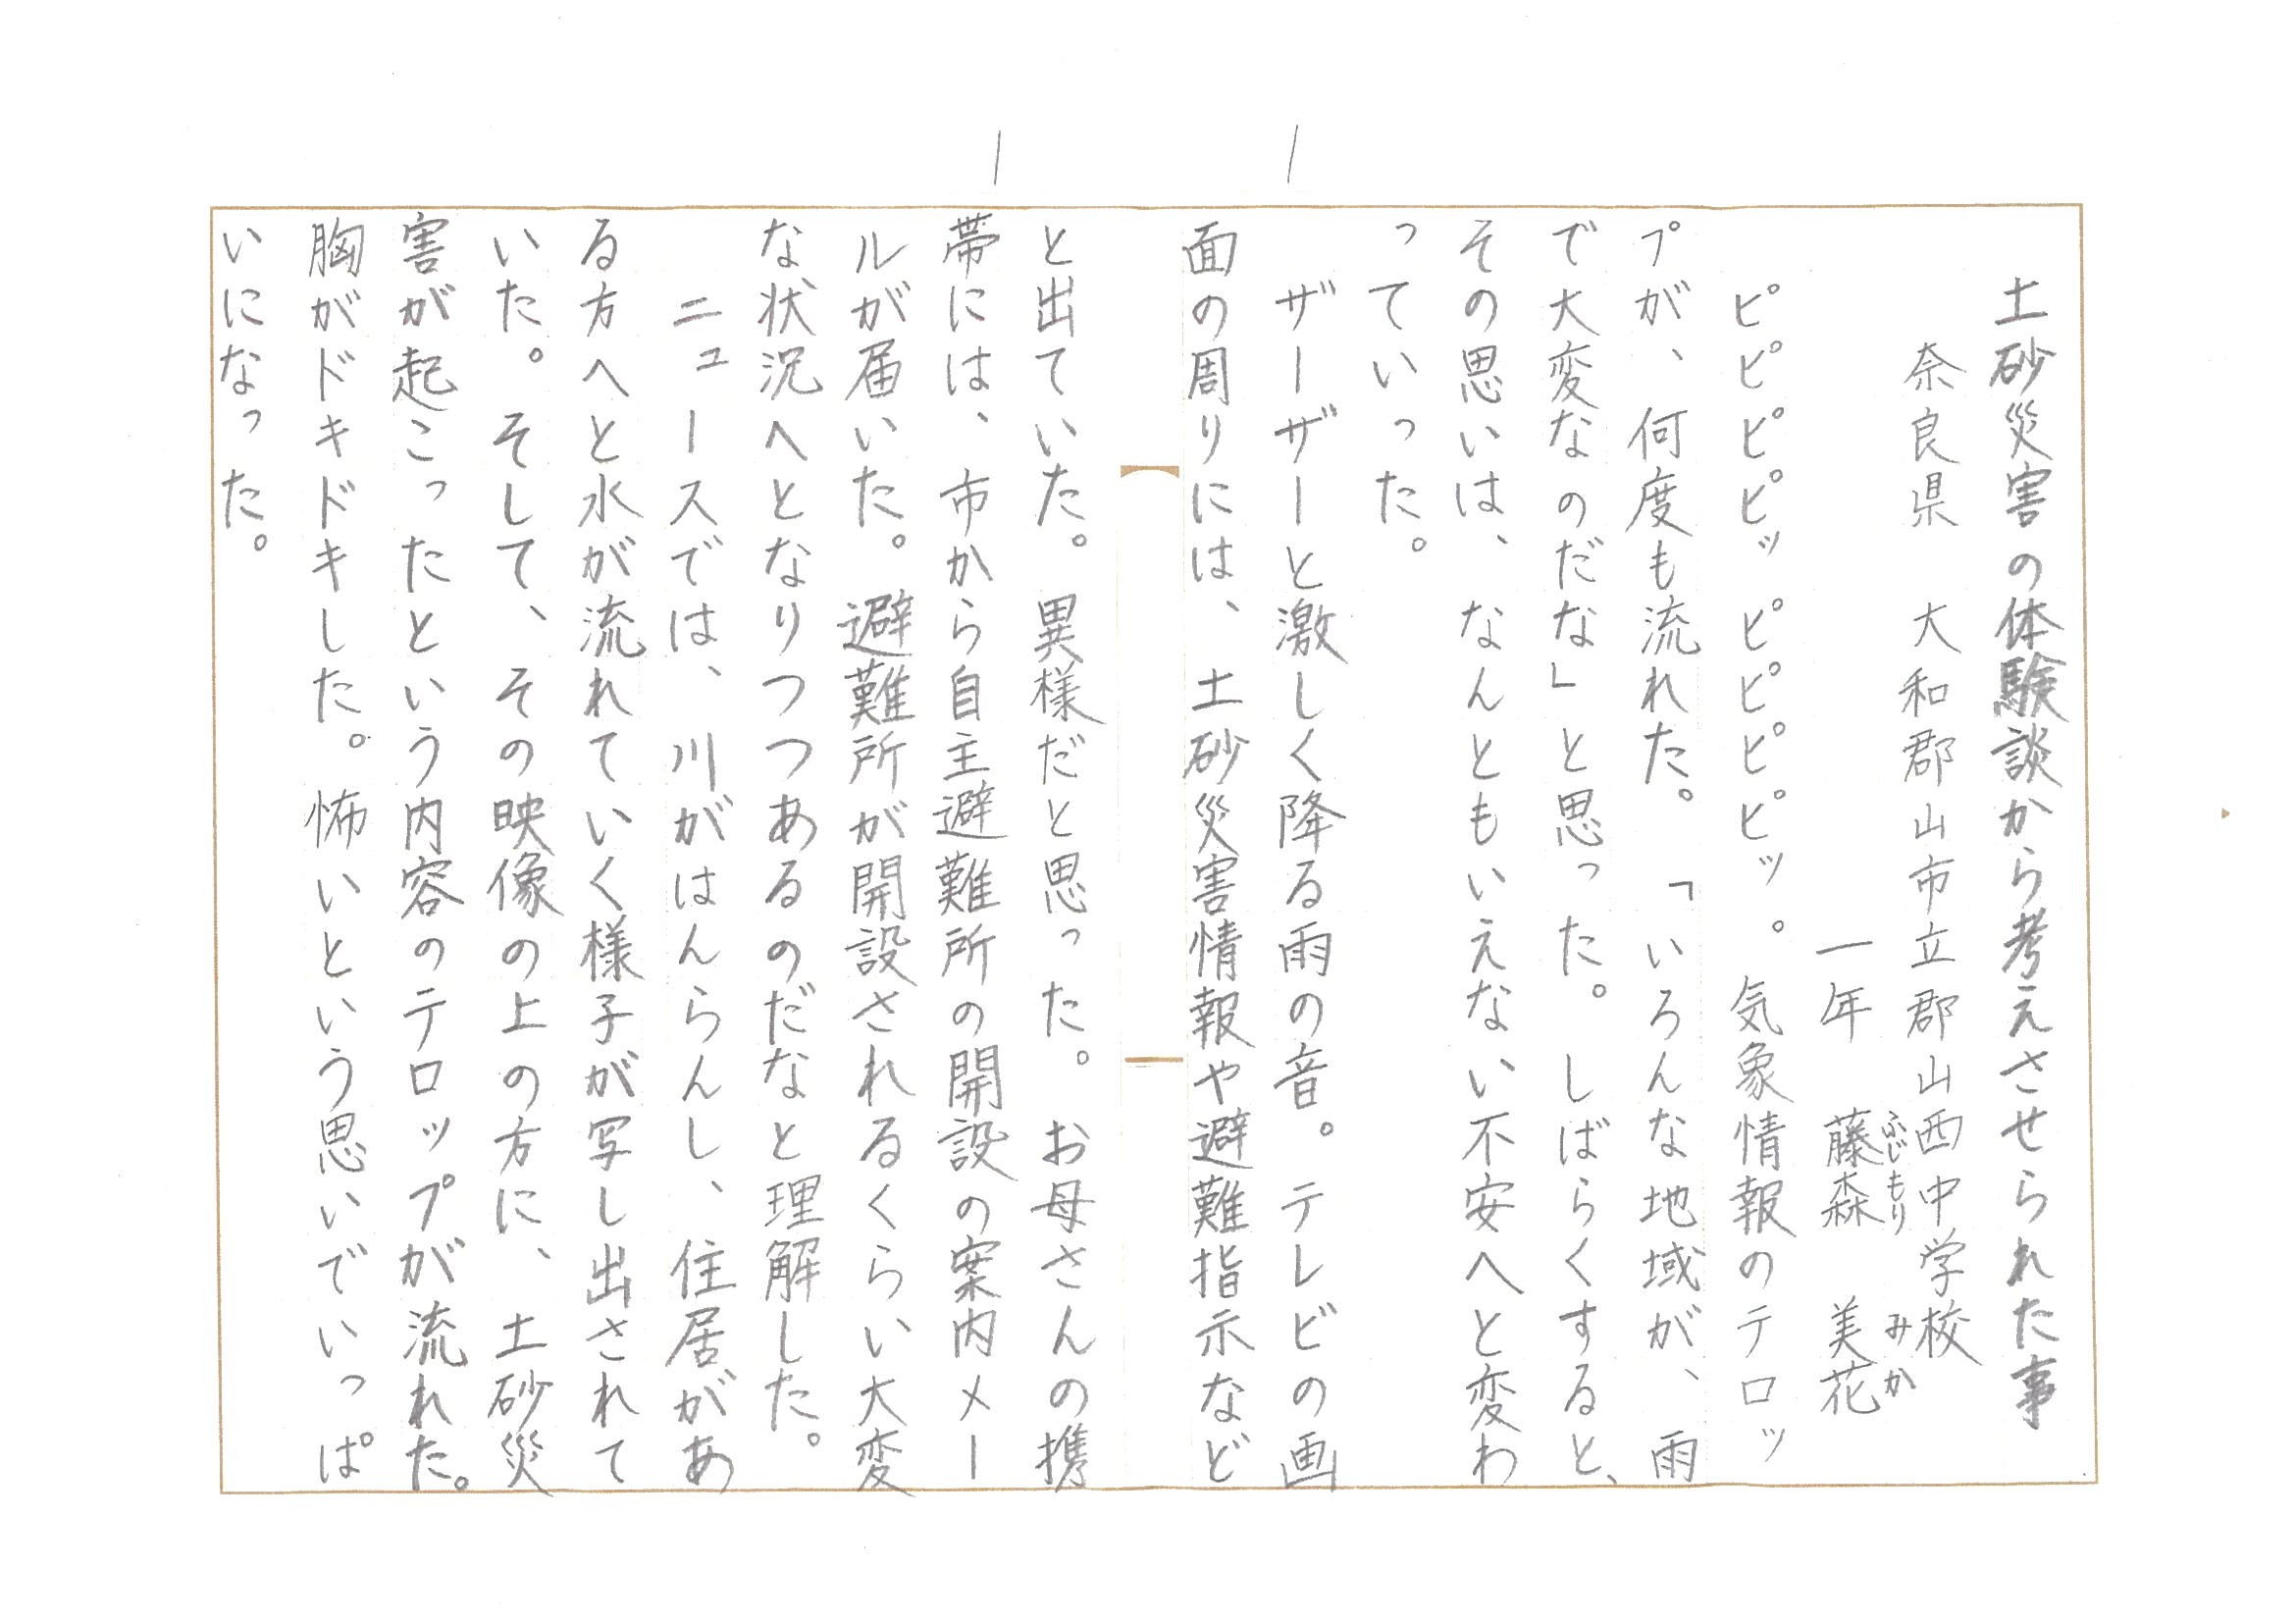 土砂災害の体験談から考えさせられた事
奈良県　大和郡山市立郡山西中学校
一年　藤森　美花
ふじもり　みか
ピピピピッピピピピッ。気象情報のテロッ
プが、何度も流れた。「いろんな地域が、雨
で大変なのだな」と思った。しばらくすると、
その思いは、なんともいえない不安へと変わ
っていった。
ザーザーと激しく降る雨の音。テレビの画
面の周りには、土砂災害情報や避難指示など
と出ていた。異様だと思った。お母さんの携
帯には、市から自主避難所の開設の案内メー
ルが届いた。避難所が開設されるくらい大変
な状況へとなりつつあるのだなと理解した。
ニュースでは、川がはんらんし、住居があ
る方へと水が流れていく様子が写し出されて
いた。そして、その映像の上の方に、土砂災
害が起こったという内容のテロップが流れた。
胸がドキドキした。怖いという思いでいっぱ
いになった。